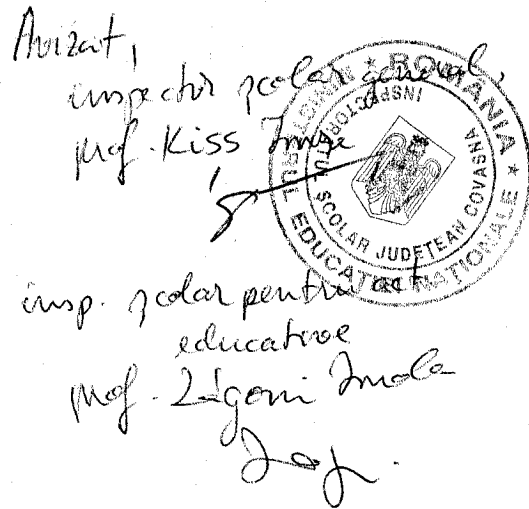 Avizat,
inspector școlar general,
prof. Kiss Imre
ROMÂNIA
MINISTERUL EDUCAȚIEI NAȚIONALE
INSPECTORATUL ȘCOLAR JUDEȚEAN COVASNA
insp. școlar pentru act.
educative
prof. Zágoni Imola